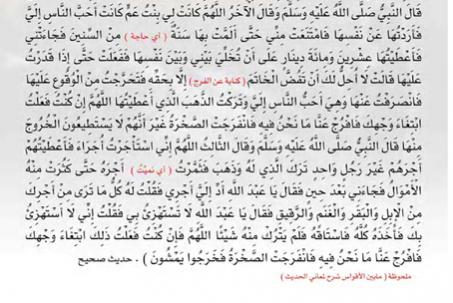 قَالَ النَّبِيُّ صَلَّى اللَّهُ عَلَيْهِ وَسَلَّمَ وَقَالَ الْآخَرُ اللَّهُمَّ كَانَتْ لِي بِنْتُ عَمٍّ كَانَتْ أَحَبَّ النَّاسِ إِلَيَّ
فَأَرَدْتُهَا عَنْ نَفْسِهَا فَامْتَنَعَتْ مِنِّي حَتَّى أَلَمَّتْ بِهَا سَنَةٌ ( أي حاجة ) مِنَ السِّنِينَ فَجَاءَتْنِي
فَأَعْطَيْتُهَا عِشْرِينَ وَمِائَةَ دِينَارٍ عَلَى أَنْ تُخَلِّيَ بَيْنِي وَبَيْنَ نَفْسِهَا فَفَعَلَتْ حَتَّى إِذَا قَدَرْتُ
عَلَيْهَا قَالَتْ لَا أُحِلُّ لَكَ أَنْ تَفُضَّ الْخَاتَمَ ( كناية عن الفرج ) إِلَّا بِحَقِّهِ فَتَحَرَّجْتُ مِنَ الْوُقُوعِ عَلَيْهَا
فَانْصَرَفْتُ عَنْهَا وَهِيَ أَحَبُّ النَّاسِ إِلَيَّ وَتَرَكْتُ الذَّهَبَ الَّذِي أَعْطَيْتُهَا اللَّهُمَّ إِنْ كُنْتُ فَعَلْتُ
ابْتِغَاءَ وَجْهِكَ فَافْرُجْ عَنَّا مَا نَحْنُ فِيهِ فَانْفَرَجَتْ الصَّخْرَةُ غَيْرَ أَنَّهُمْ لَا يَسْتَطِيعُونَ الْخُرُوجَ
مِنْهَا قَالَ النَّبِيُّ صَلَّى اللَّهُ عَلَيْهِ وَسَلَّمَ وَقَالَ الثَّالِثُ اللَّهُمَّ إِنِّي اسْتَأْجَرْتُ أُجَرَاءَ فَأَعْطَيْتُهُمْ
أَجْرَهُمْ غَيْرَ رَجُلٍ وَاحِدٍ تَرَكَ الَّذِي لَهُ وَذَهَبَ فَثَمَّرْتُ ( أي نميْتُ ) أَجْرَهُ حَتَّى كَثُرَتْ مِنْهُ
الْأَمْوَالُ فَجَاءَنِي بَعْدَ حِينٍ فَقَالَ يَا عَبْدَ اللَّهِ أَدِّ إِلَيَّ أَجْرِي فَقُلْتُ لَهُ كُلُّ مَا تَرَى مِنْ أَجْرِكَ
مِنَ الْإِبِلِ وَالْبَقَرِ وَالْغَنَمِ وَالرَّقِيقِ فَقَالَ يَا عَبْدَ اللَّهِ لَا تَسْتَهْزِئُ بِي فَقُلْتُ إِنِّي لَا أَسْتَهْزِئُ
بِكَ فَأَخَذَهُ كُلَّهُ فَاسْتَاقَهُ فَلَمْ يَتْرُكْ مِنْهُ شَيْئًا اللَّهُمَّ فَإِنْ كُنْتُ فَعَلْتُ ذَلِكَ ابْتِغَاءَ وَجْهِكَ
فَافْرُجْ عَنَّا مَا نَحْنُ فِيهِ فَانْفَرَجَتْ الصَّخْرَةُ فَخَرَجُوا يَمْشُونَ ) . حديث صحيح
ملحوظة ( مابين الأقواس شرح لمعاني الحديث )